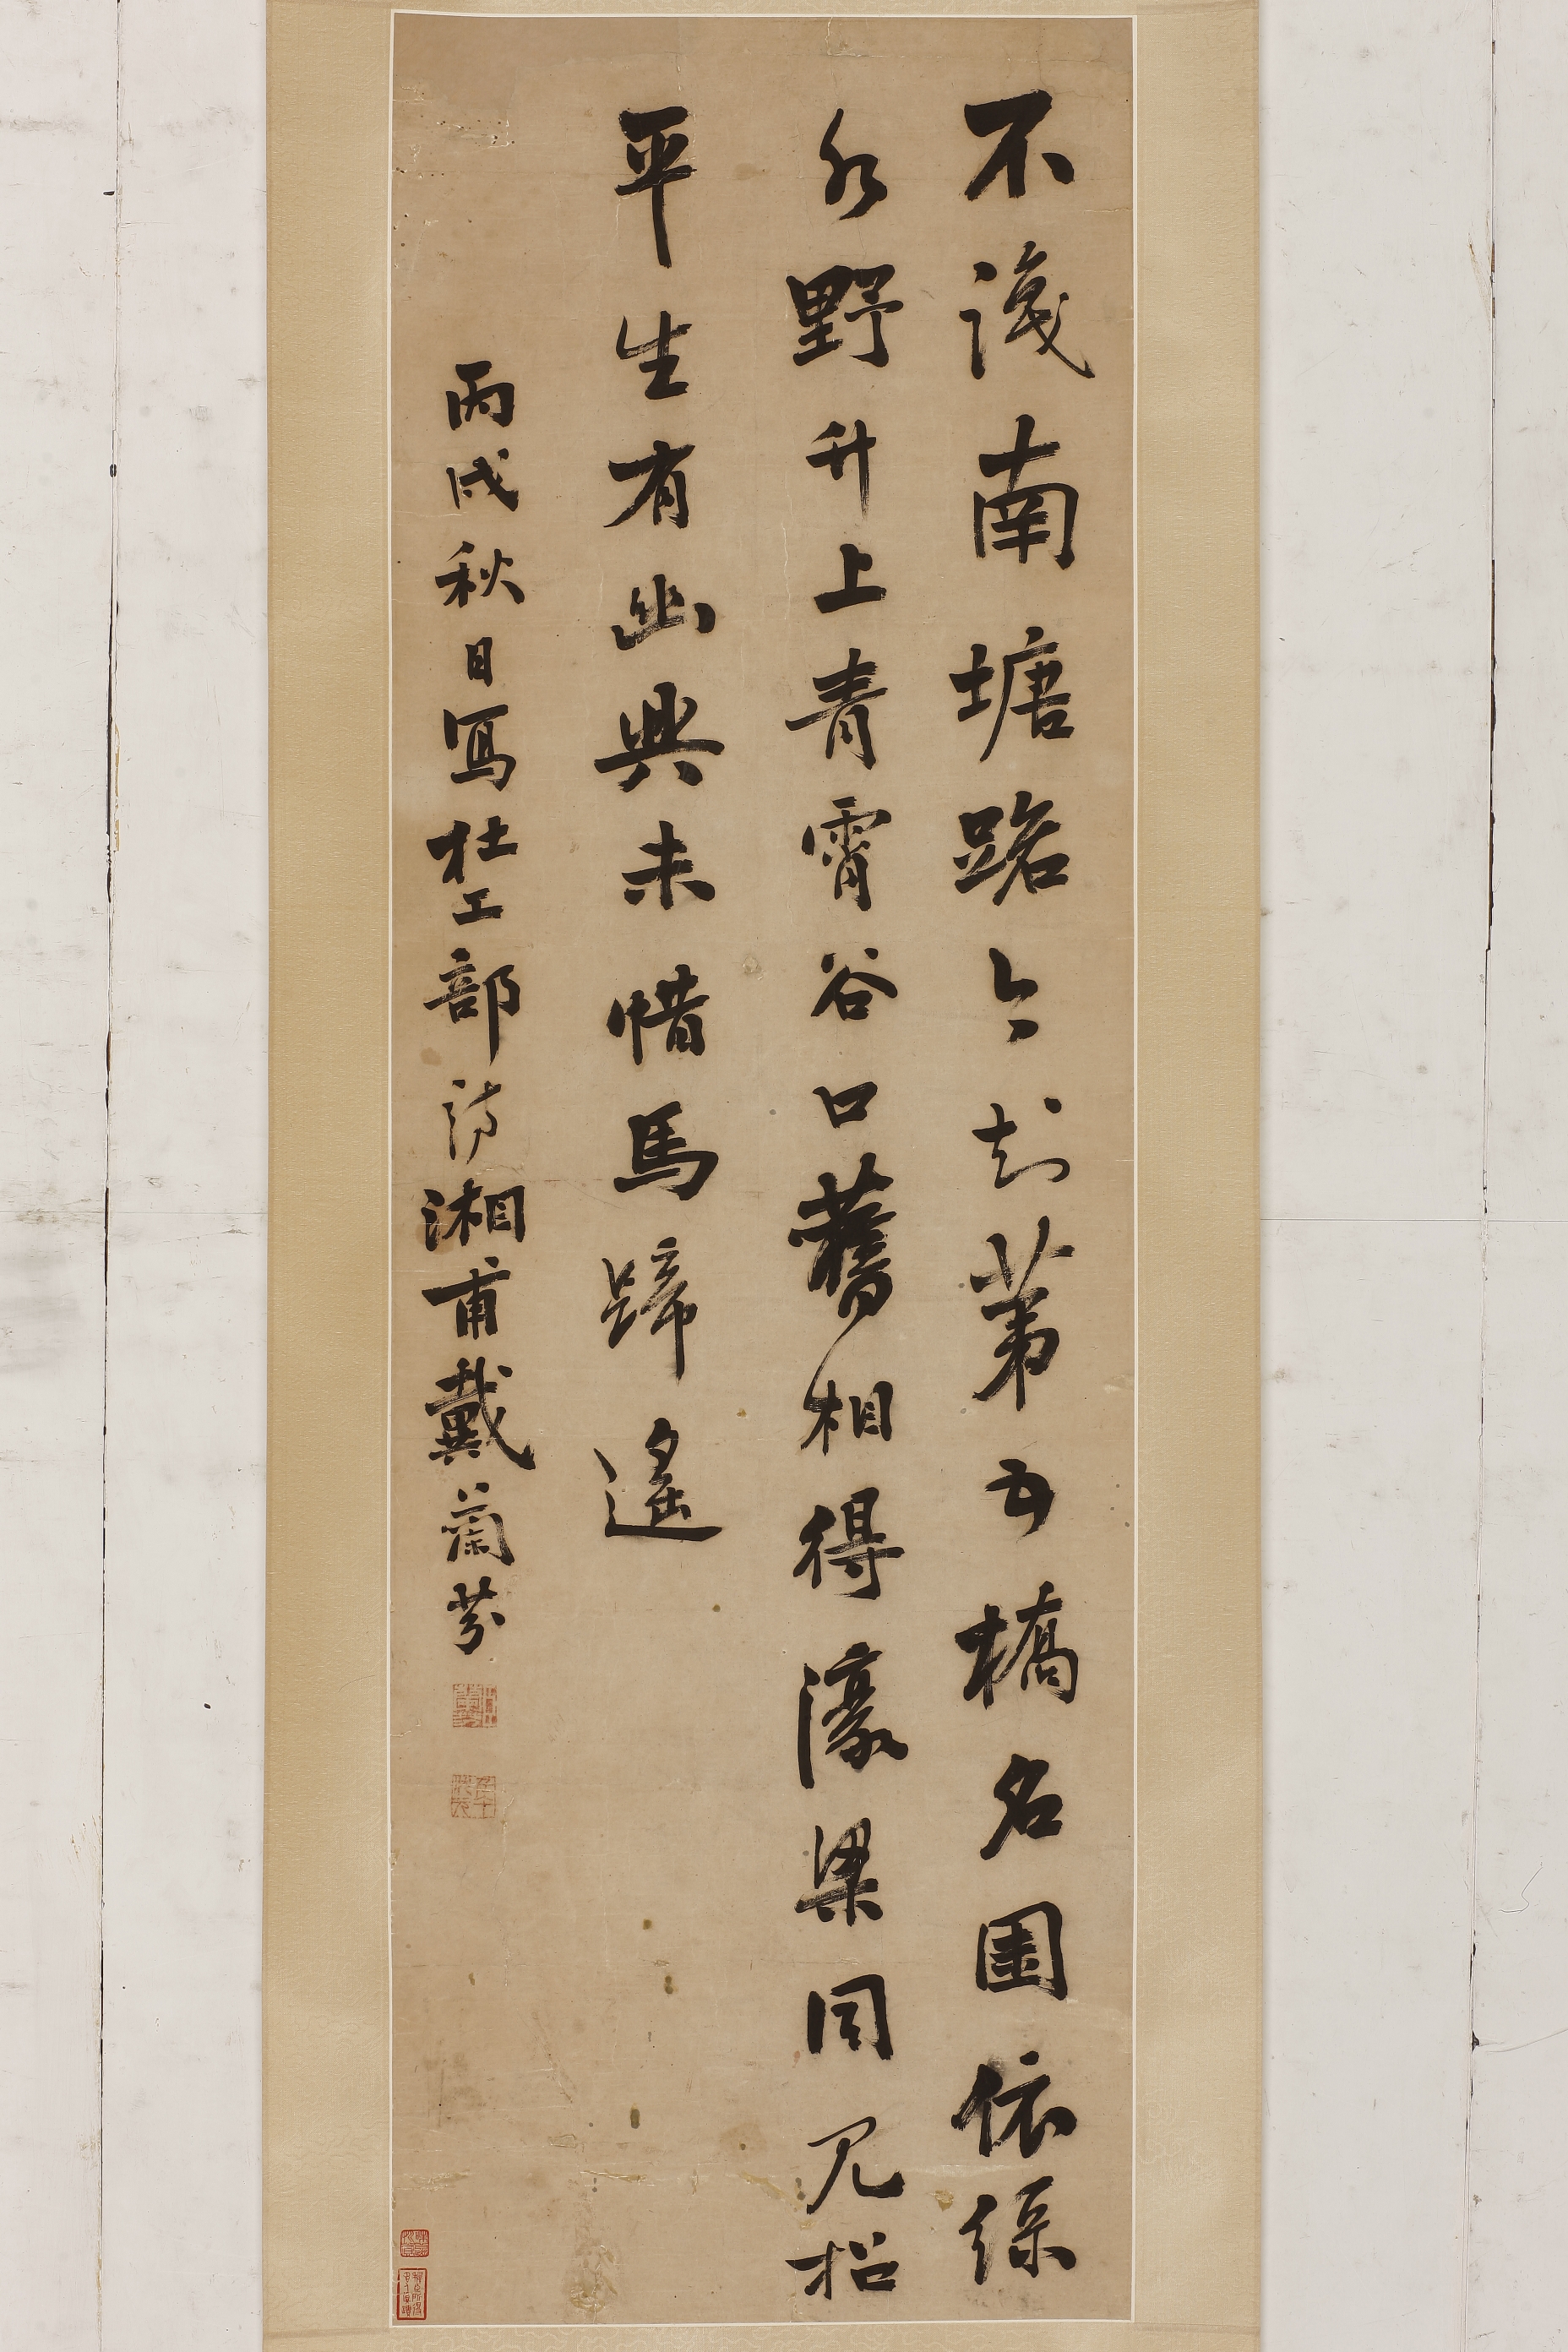 不識南塘路今知第五橋名園依綠
水野竹上青霄谷口舊相得濠梁同見招
平生有幽興未惜馬蹄遙
丙戌秋日寫杜工部詩湘甫戴蘭芬